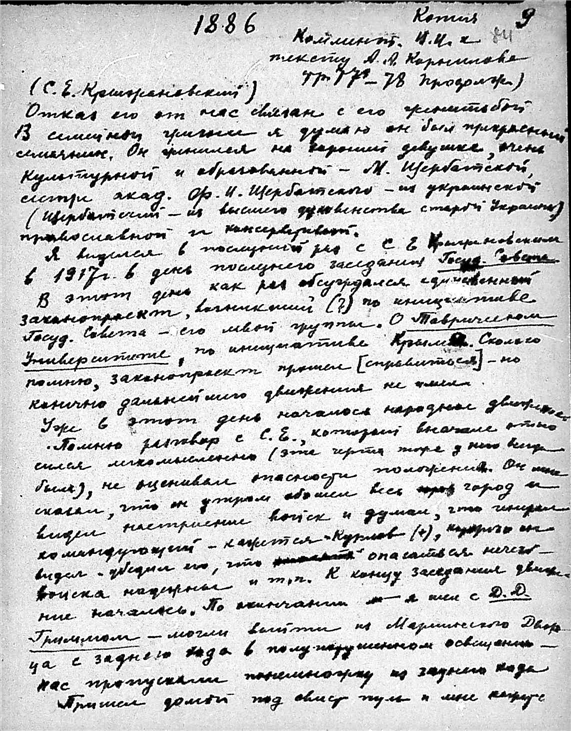 1886
Копия 9
Коммент. И.И. к
тексту А.А. Корнилова
стр 77 – 78 продолж.)
(С.Е. Крыжановский)
Отказ его от нас связан с его женитьбой
В семейной жизни я думаю он был прекрасный
семьянин. Он женился на хорошей девушке, очень
культурной и образованной – М. Щербатской,
сестре акад. Ф.И. Щербатского – из украинской
(Щербатский – из высшего духовенства старой Украины)
православной и консервативной.
Я виделся в последний раз с С Е Крыжановским
в 1917г. в день последнего заседания Госуд. Совета
В этот день как раз обсуждался единственный
законопроект, возникший (?) по инициативе
Госуд. Совета – его левой группы. О Таврическом
Университете, по инициативе Крыма. Сколько
помню, законопроект прошел [справиться] – но
конечно дальнейшего движения не имел.
Уже в этот день началось народное движение
Помню разговор с С.Е., который вначале отно
сился легкомысленно (эта черта тоже у него
была), не оценивал опасности положения. Он мне
сказал, что он утром обошел весь город и
видел настроение войск и думал, что
командующий – кажется – Курлов (+), которого он
видел – убедил его, что опасаться нечего –
войска надежны и т.п. К концу заседания движе-
ние началось. По окончании я шел с Д.Д.
Гриммом – могли выйти из Мариинского Двор-
ца с заднего хода в полупотушенном освещении –
нас пропускали понемногу из заднего хода
Пришел домой под свист пуль и мне кажется